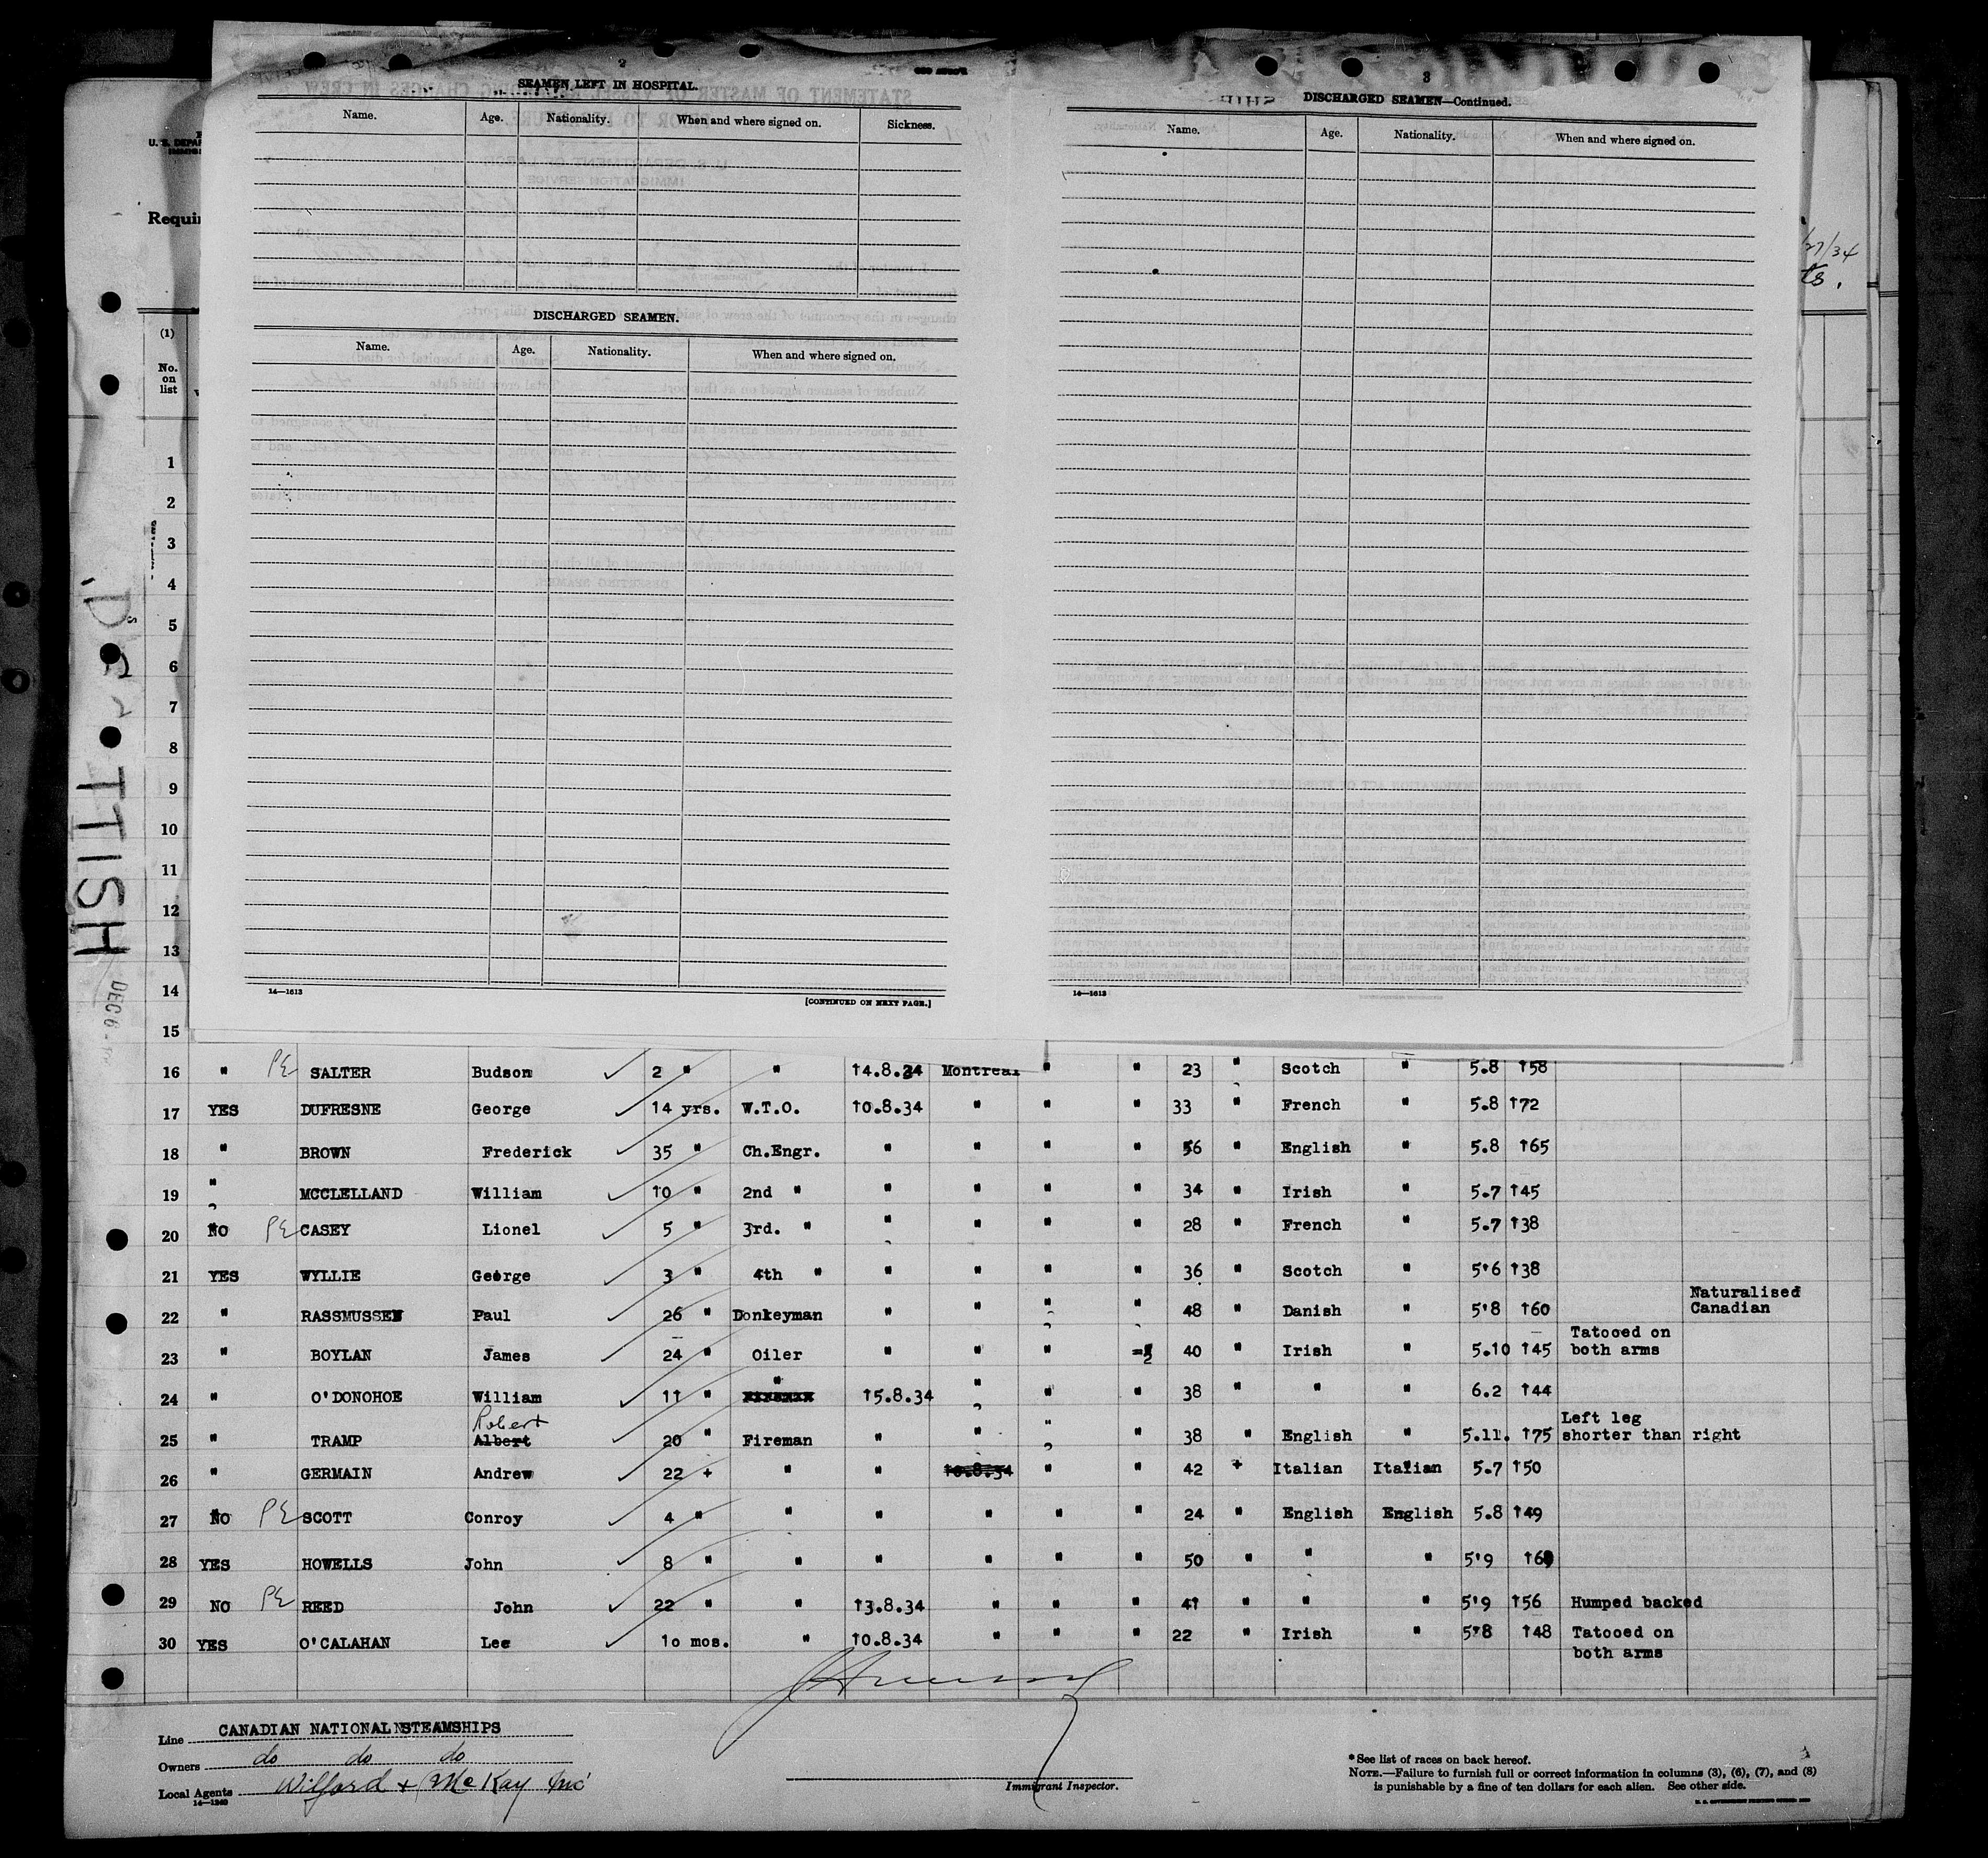 2
SEAMEN LEFT IN HOSPITAL.
Name. Age. Nationality. When and where signed on. Sickness.
DISCHARGED SEAMEN.
Name. Age. Nationality. When and where signed on.
14—1613
[CONTINUED ON NEXT PAGE.]
3
DISCHARGED SEAMEN—Continued.
Name. Age. Nationality. When and where signed on.
14—1613
U. S. DEPAR
Requi
/27/34
(1)
No.
on
list
1
2
3
4
5
6
7
8
9
10
11
12
13
14
15
TISH
DEC 6
16 " PE SALTER Budson 2 " " 14.8.34 Montreal " " 23 " Scotch " 5.8 158
17 YES DUFRESNE George 14 yrs. W.T.O. 10.8.34 " " " 33 " French " 5.8 172
18 " BROWN Frederick 35 " Ch.Engr. " " " " 56 " English " 5.8 165
19 " MCCLELLAND William 10 " 2nd " " " " " 34 " Irish " 5.7 145
20 NO PE CASEY Lionel 5 " 3rd. " " " " " 28 " French " 5.7 138
21 YES WYLLIE George 3 " 4th " " " " " 36 " Scotch " 5'6 138
22 " RASSMUSSEN Paul 26 " Donkeyman " " " " 48 " Danish " 5'8 160 Naturalised Canadian
23 " BOYLAN James 24 " Oiler " " " " 40 " Irish " 5.10 145 Tatooed on both arms
24 " O'DONOHOE William 11 " " 15.8.34 " " " 38 " " " 6.2 144
Robert
25 " TRAMP Albert 20 " Fireman " " " " 38 " English " 5.11. 175 Left leg shorter than right
26 " GERMAIN Andrew 22 + " " 10.8.34 " " 42 + Italian Italian 5.7 150
27 NO PE SCOTT Conroy 4 " " " " " " 24 " English English 5.8 149
28 YES HOWELLS John 8 " " " " " " 50 " " " 5'9
29 NO PE REED John 22 " " 13.8.34 " " " 41 " " " 5'9 156 Humped backed
30 YES O'CALAHAN Lee 10 mos. " 10.8.34 " " " 22 " Irish " 5'8 148 Tatooed on both arms
Line CANADIAN NATIONAL STEAMSHIPS
Owners do do do
Local Agents Wilford + McKay Inc
14—1240
Immigrant Inspector.
* See list of races on back hereof.
NOTE.—Failure to furnish full or correct information in columns (3), (6), (7), and (8)
is punishable by a fine of ten dollars for each alien. See other side.